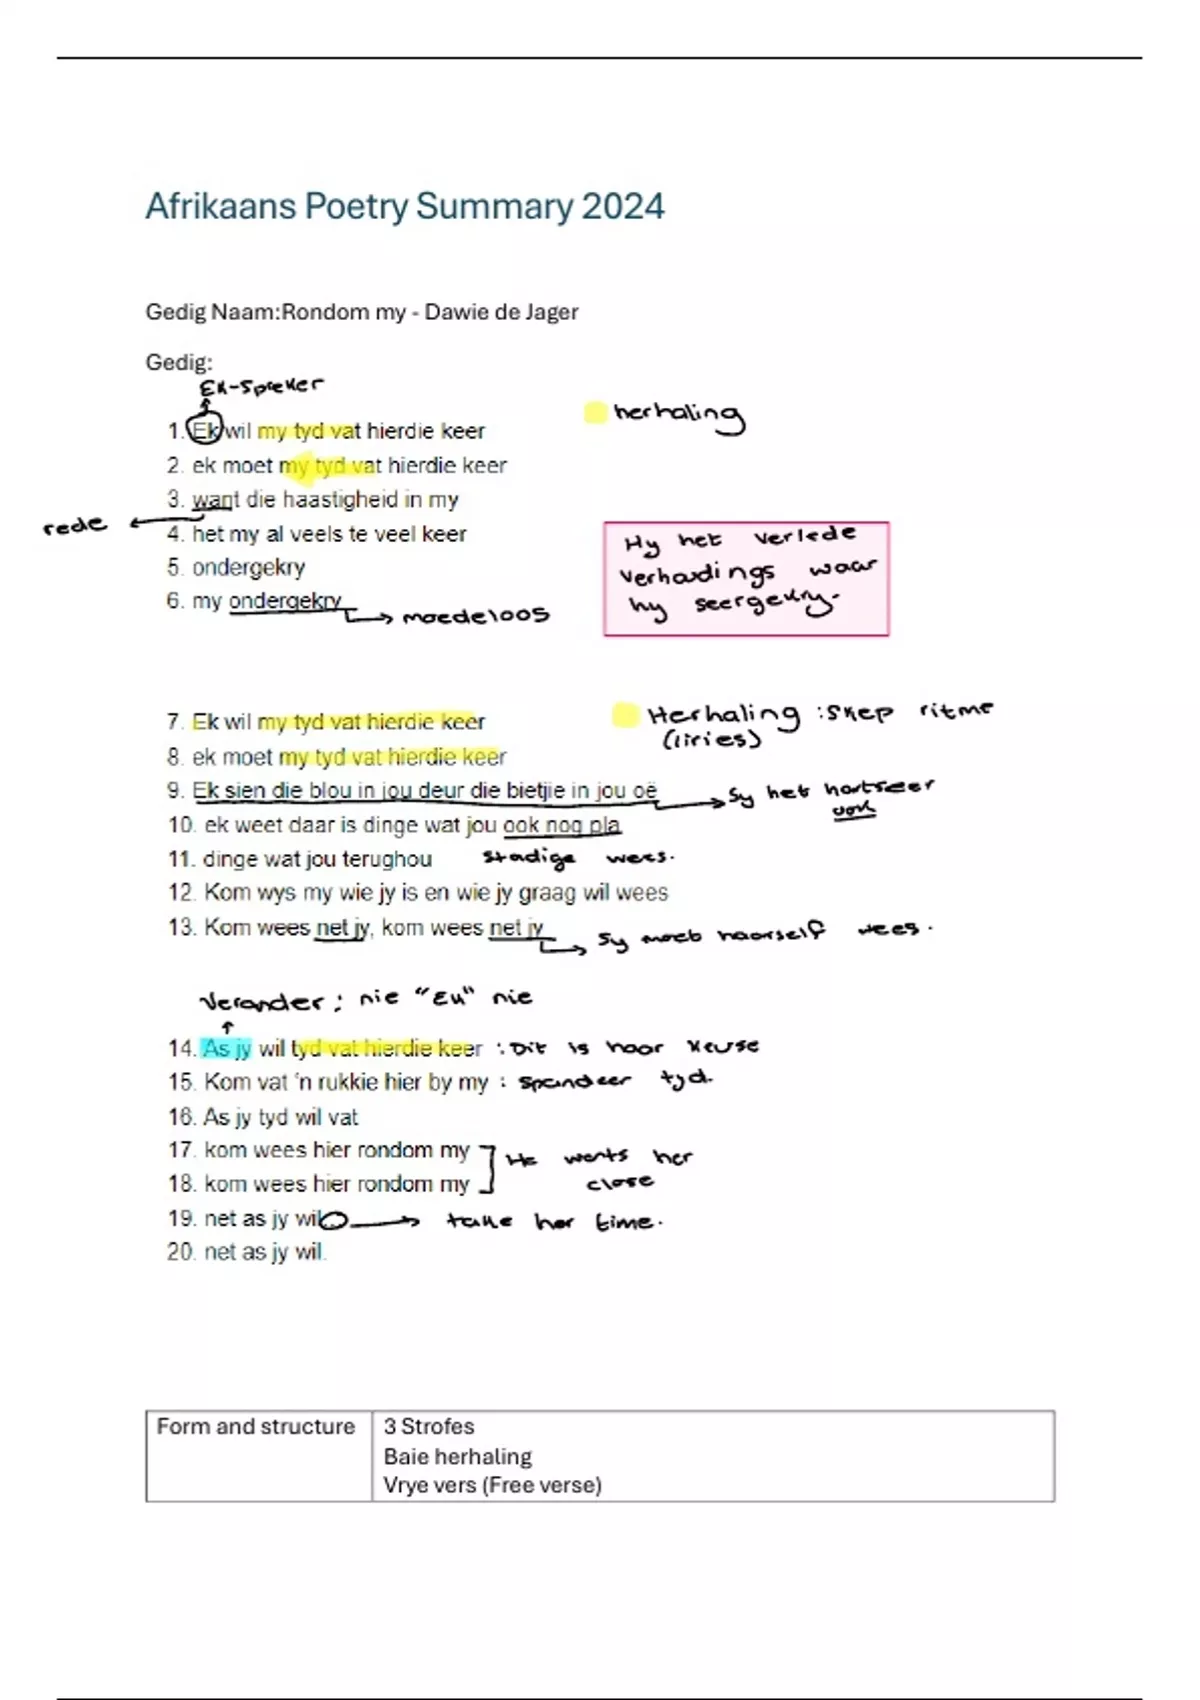 Afrikaans Poetry Summary 2024
Gedig Naam:Rondom my - Dawie de Jager
Gedig:
Ek-spreker
herhaling
1. Ek wil my tyd vat hierdie keer
2. ek moet my tyd vat hierdie keer
3. want die haastigheid in my
rede
4. het my al veels te veel keer
5. ondergekry
6. my ondergekry
moedeloos
Hy het verlede
verhoudings waar
hy seergekry.
7. Ek wil my tyd vat hierdie keer
Herhaling : skep ritme
(liries)
8. ek moet my tyd vat hierdie keer
9. Ek sien die blou in jou deur die bietjie in jou oë
Sy het hartseer
ook
10. ek weet daar is dinge wat jou ook nog pla
11. dinge wat jou terughou
stadige wees.
12. Kom wys my wie jy is en wie jy graag wil wees
13. Kom wees net jy, kom wees net jy
Sy moet haarself wees.
Verander : nie "Ek" nie
14. As jy wil tyd vat hierdie keer : Dit is haar keuse
15. Kom vat 'n rukkie hier by my : spandeer tyd.
16. As jy tyd wil vat
17. kom wees hier rondom my
He wants her
close
18. kom wees hier rondom my
19. net as jy wil
take her time.
20. net as jy wil.
Form and structure
3 Strofes
Baie herhaling
Vrye vers (Free verse)